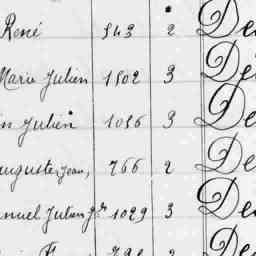 René 543 2 De
Marie Julien 1502 3 De
in Julien 1036 3 De
Auguste Jean, 766 2 De
anuel Julien 1029 3 De
2 De